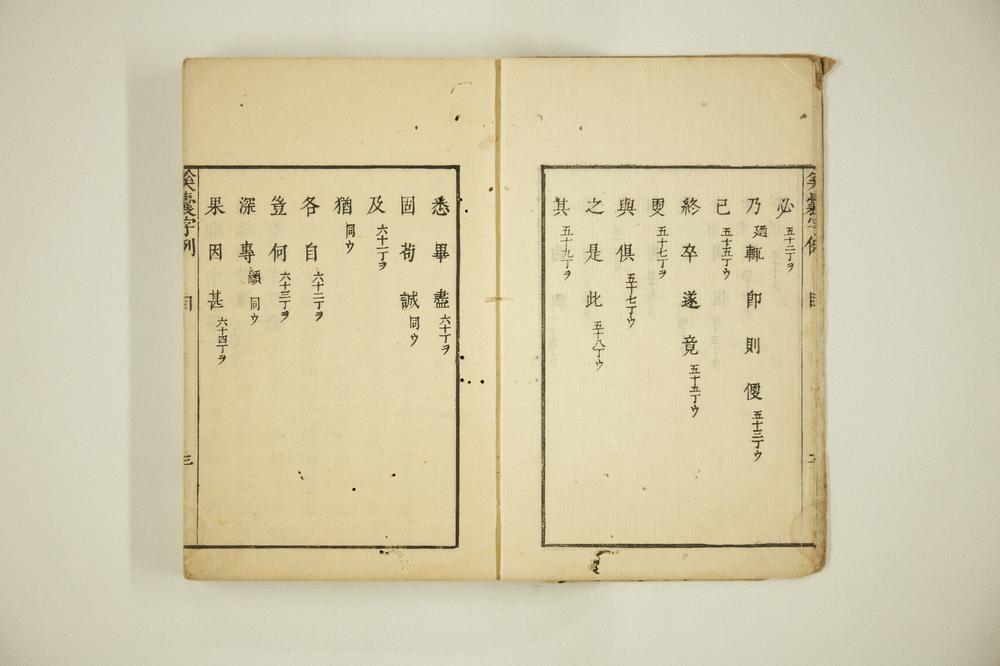 必 五十二丁ヲ
乃 廼 輒 卽 則 便 五十三丁ウ
已 五十五丁ウ
終 卒 遂 竟 五十五丁ウ
更 五十七丁ヲ
與 俱 五十七丁ウ
之 是 此 五十八丁ウ
其 五十九丁ヲ
悉 畢 盡 六十丁ヲ
固 苟 誠 同ウ
及 六十一丁ヲ
猶 同ウ
各 自 六十二丁ヲ
豈 何 六十三丁ヲ
深 專 顓 同ウ
果 因 甚 六十四丁ヲ
囊字例 目 三